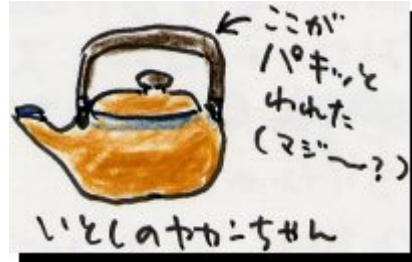 ここが
パキッと
われた
(マジ〜?)
いとしのヤカンちゃん